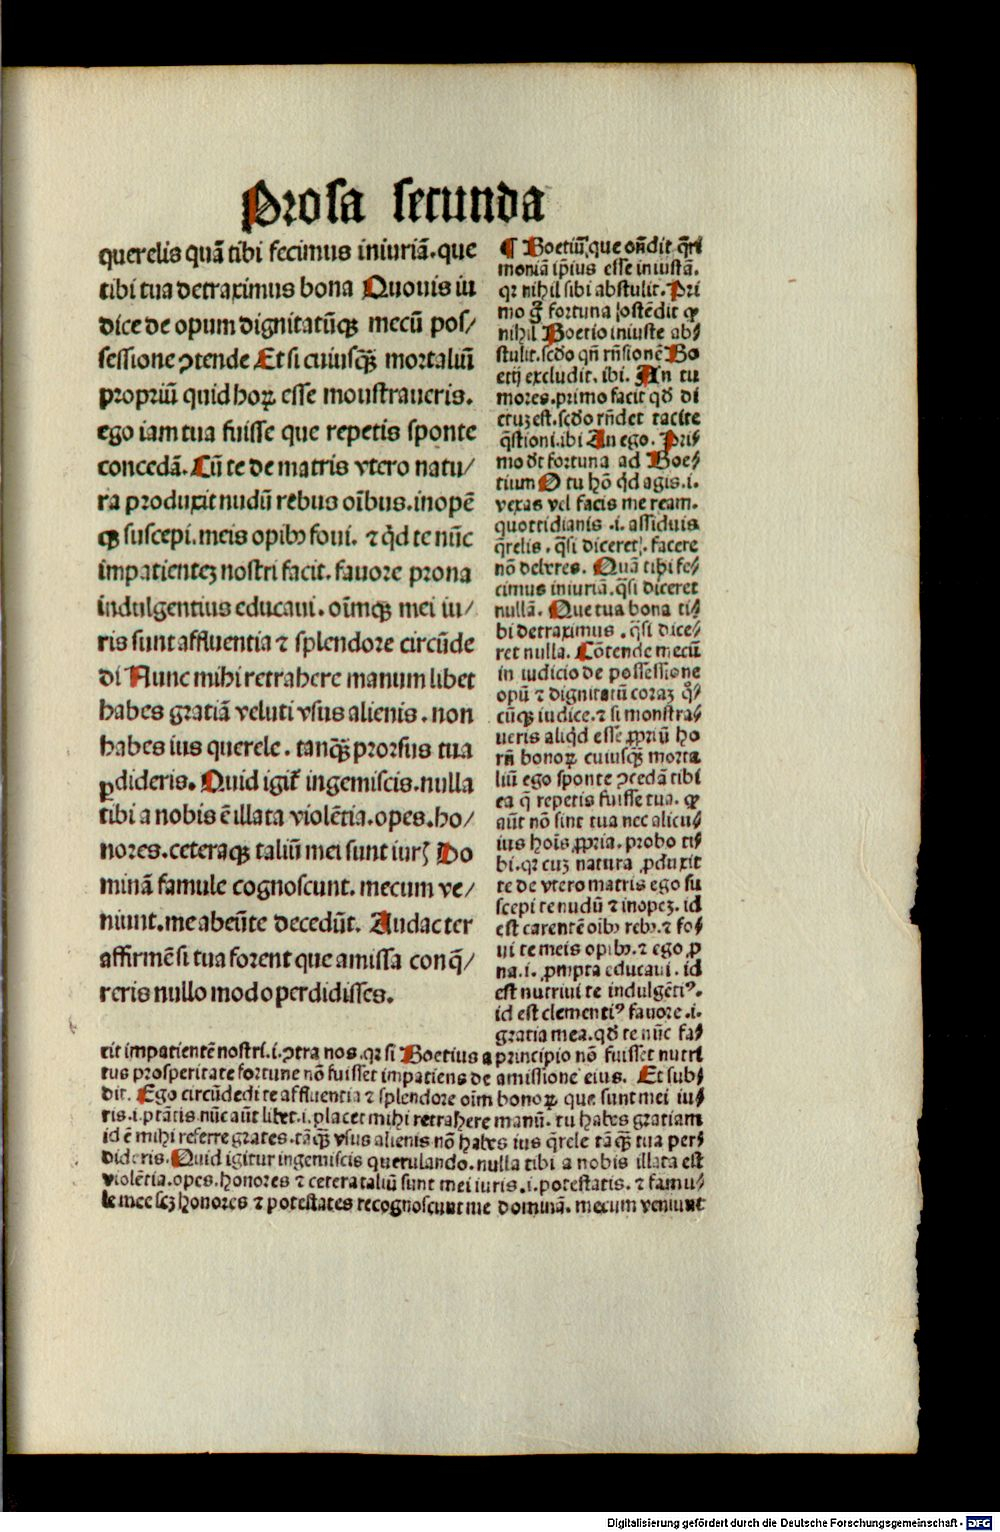 Prosa secunda
querelis quā tibi fecimus iniuriā. que
tibi tua detraximus bona Quouis iu
dice de opum dignitatūqꝫ mecū pos/
sessione ↄtende Et si cuiusqꝫ̄ mortaliū
propriū quid hoꝝ esse monstraueris.
ego iam tua fuisse que repetis sponte
concedā. Cū te de matris vtero natu/
ra produxit nudū rebus oībus. inopē
qꝫ suscepi. meis opibꝰ foui. ⁊ qd̄ te nūc
impatienteꝫ nostri facit. fauore prona
indulgentius educaui. oīmqꝫ mei iu/
ris sunt affluentia ⁊ splendore circūde
di Nunc mihi retrahere manum libet
habes gratiā veluti vsus alienis. non
habes ius querele. tanqꝫ̄ prorsus tua
ꝑdideris. Quid igit̄ ingemiscis. nulla
tibi a nobis ē illata violētia. opes. ho/
nores. ceteraqꝫ taliū mei sunt iurꝭ Do
minā famule cognoscunt. mecum ve/
niunt. me abeūte decedūt. Audacter
affirmē si tua forent que amissa conq̄/
reris nullo modo perdidisses.
¶ Boetiū, que on̄dit q̄ri
moniā ip̄ius esse iniustā.
qꝛ nihil sibi abstulit. Pri
mo g̊ fortuna ostēdit ꝙ
nihil Boetio iniuste ab/
stulit. scd̄o qn̄ rn̄sionē Bo
etij excludit. ibi. An tu
mores. primo facit qd̄ di
ctuꝫ est. scd̄o rn̄det tacite
q̄stioni. ibi An ego. Pri/
mo dt̄ fortuna ad Boe/
tium O tu hō qd̄ agis .i.
vexas vel facis me ream.
quottidianis .i. assiduis
q̄relis. q̄si diceret. facere
nō deberes. Quā tibi fe/
cimus iniuriā. q̄si diceret
nullā. Que tua bona ti/
bi detraximus. q̄si dice/
ret nulla. Cōtende mecū
in iudicio de possessione
opū ⁊ dignitatū coraꝫ qͦ/
cūqꝫ iudice. ⁊ si monstra/
ueris aliqd̄ esse ꝓpriū ho
rū bonoꝝ cuiusqꝫ̄ morta
liū ego sponte ↄcedā tibi
ea q̄ repetis fuisse tua. ꝙ
aūt nō sint tua nec alicu/
ius hoīs ꝓpria. probo ti/
bi. qꝛ cuꝫ natura ꝓduxit
te de vtero matris ego su
scepi te nudū ⁊ inopeꝫ. id
est carentē oībꝰ rebꝰ. ⁊ fo/
ui te meis opibꝰ. ⁊ ego ꝓ
na .i. ꝓmpta educaui. id
est nutriui te indulgētiꝰ.
id est clementiꝰ fauore .i.
gratia mea. qd̄ te nūc fa/
cit impatientē nostri .i. ↄtra nos. qꝛ si Boetius a principio nō fuisset nutri
tus prosperitate fortune nō fuisset impatiens de amissione eius. Et sub/
dit. Ego circūdedi te affluentia ⁊ splendore oīm bonoꝝ que sunt mei iu/
ris .i. ptātis. nūc aūt libet .i. placet mihi retrahere manū. tu habes gratiam
id ē mihi referre grates. tāqꝫ̄ vsus alienis nō habes ius q̄rele tāqꝫ̄ tua per/
dideris. Quid igitur ingemiscis querulando. nulla tibi a nobis illata est
violētia. opes. honores ⁊ cetera taliū sunt mei iuris .i. potestatis. ⁊ famu/
le mee scꝫ honores ⁊ potestates recognoscunt me dominā. mecum veniunt
Digitalisierung gefördert durch die Deutsche Forschungsgemeinschaft - DFG